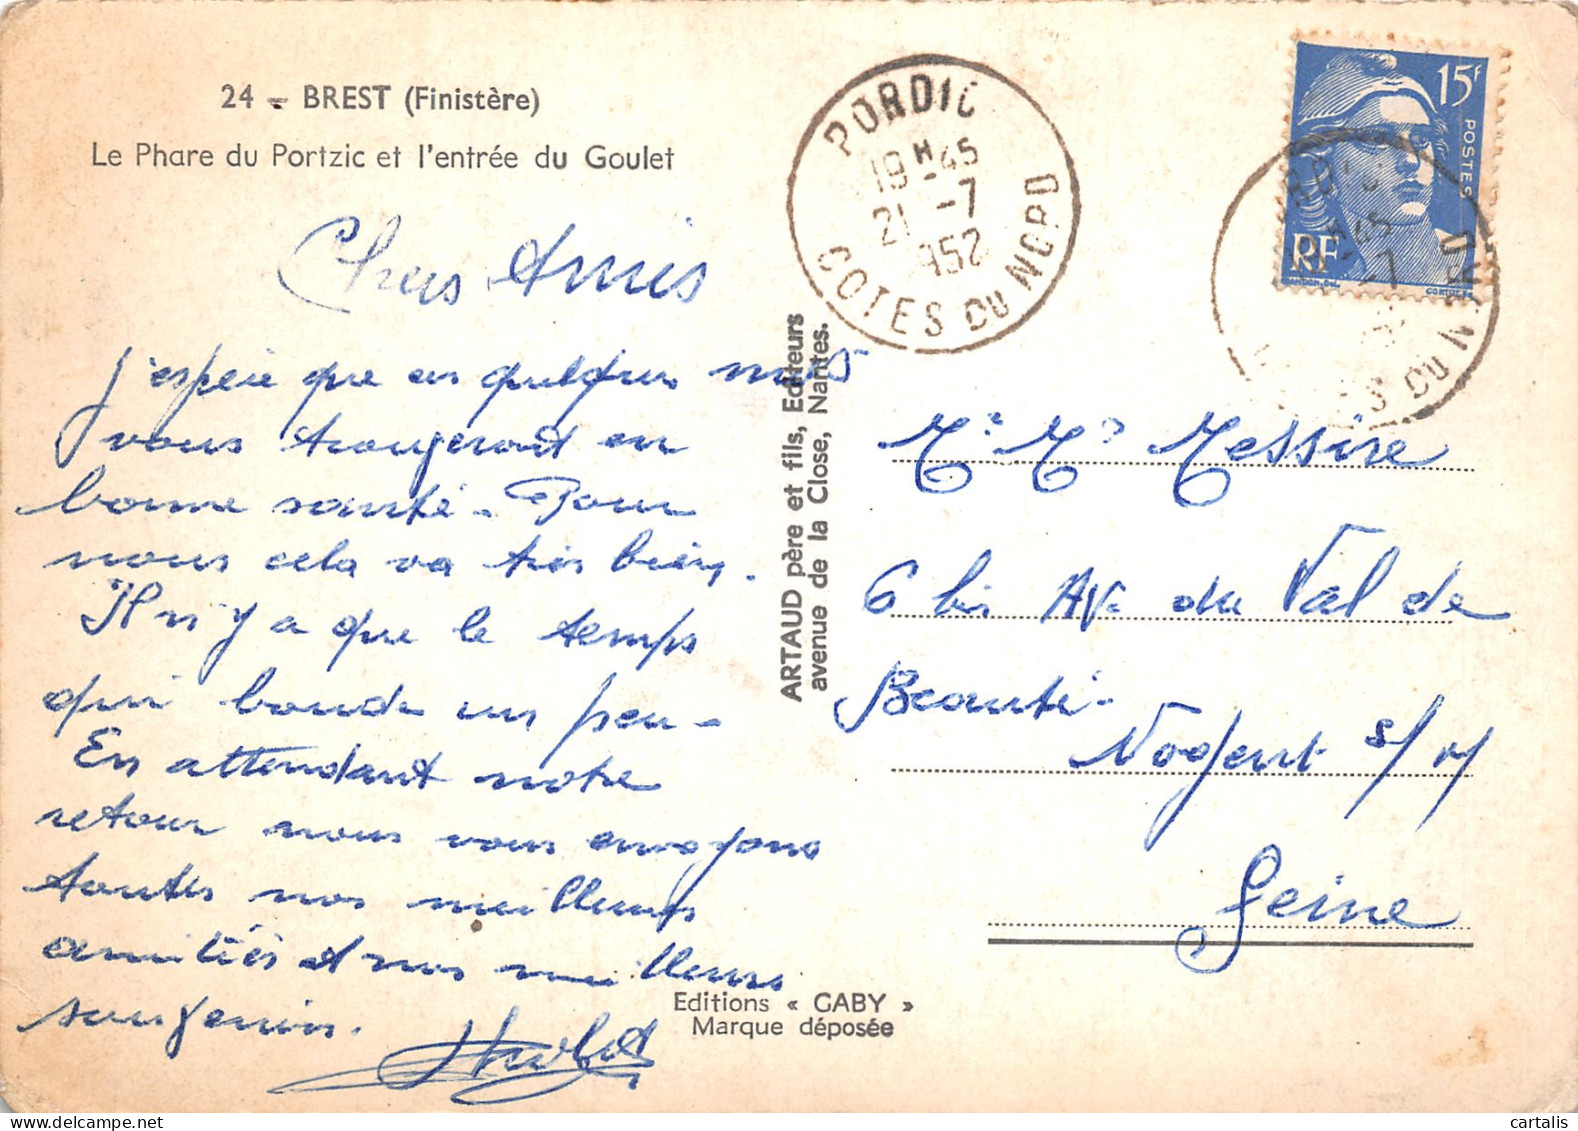 24 - BREST (Finistère)
Le Phare du Portzic et l'entrée du Goulet
Chers Amis
J'espère que ces quelques mots
vous trouveront en
bonne santé - Pour
nous cela va très bien.
Il n'y a que le temps
qui boude un peu -
En attendant notre
retour nous vous envoyons
toutes nos meilleures
amitiés et nos meilleurs
souvenirs.
PORDIC
19H45
21 -7
1952
COTES DU NORD
15F
POSTES
RF
ARTAUD père et fils, Editeurs
avenue de la Close, Nantes.
Mr Me Messire
6 bis Av. du Val de
Beauté -
Nogent s/M
Seine
Editions « GABY »
Marque déposée
cartalis